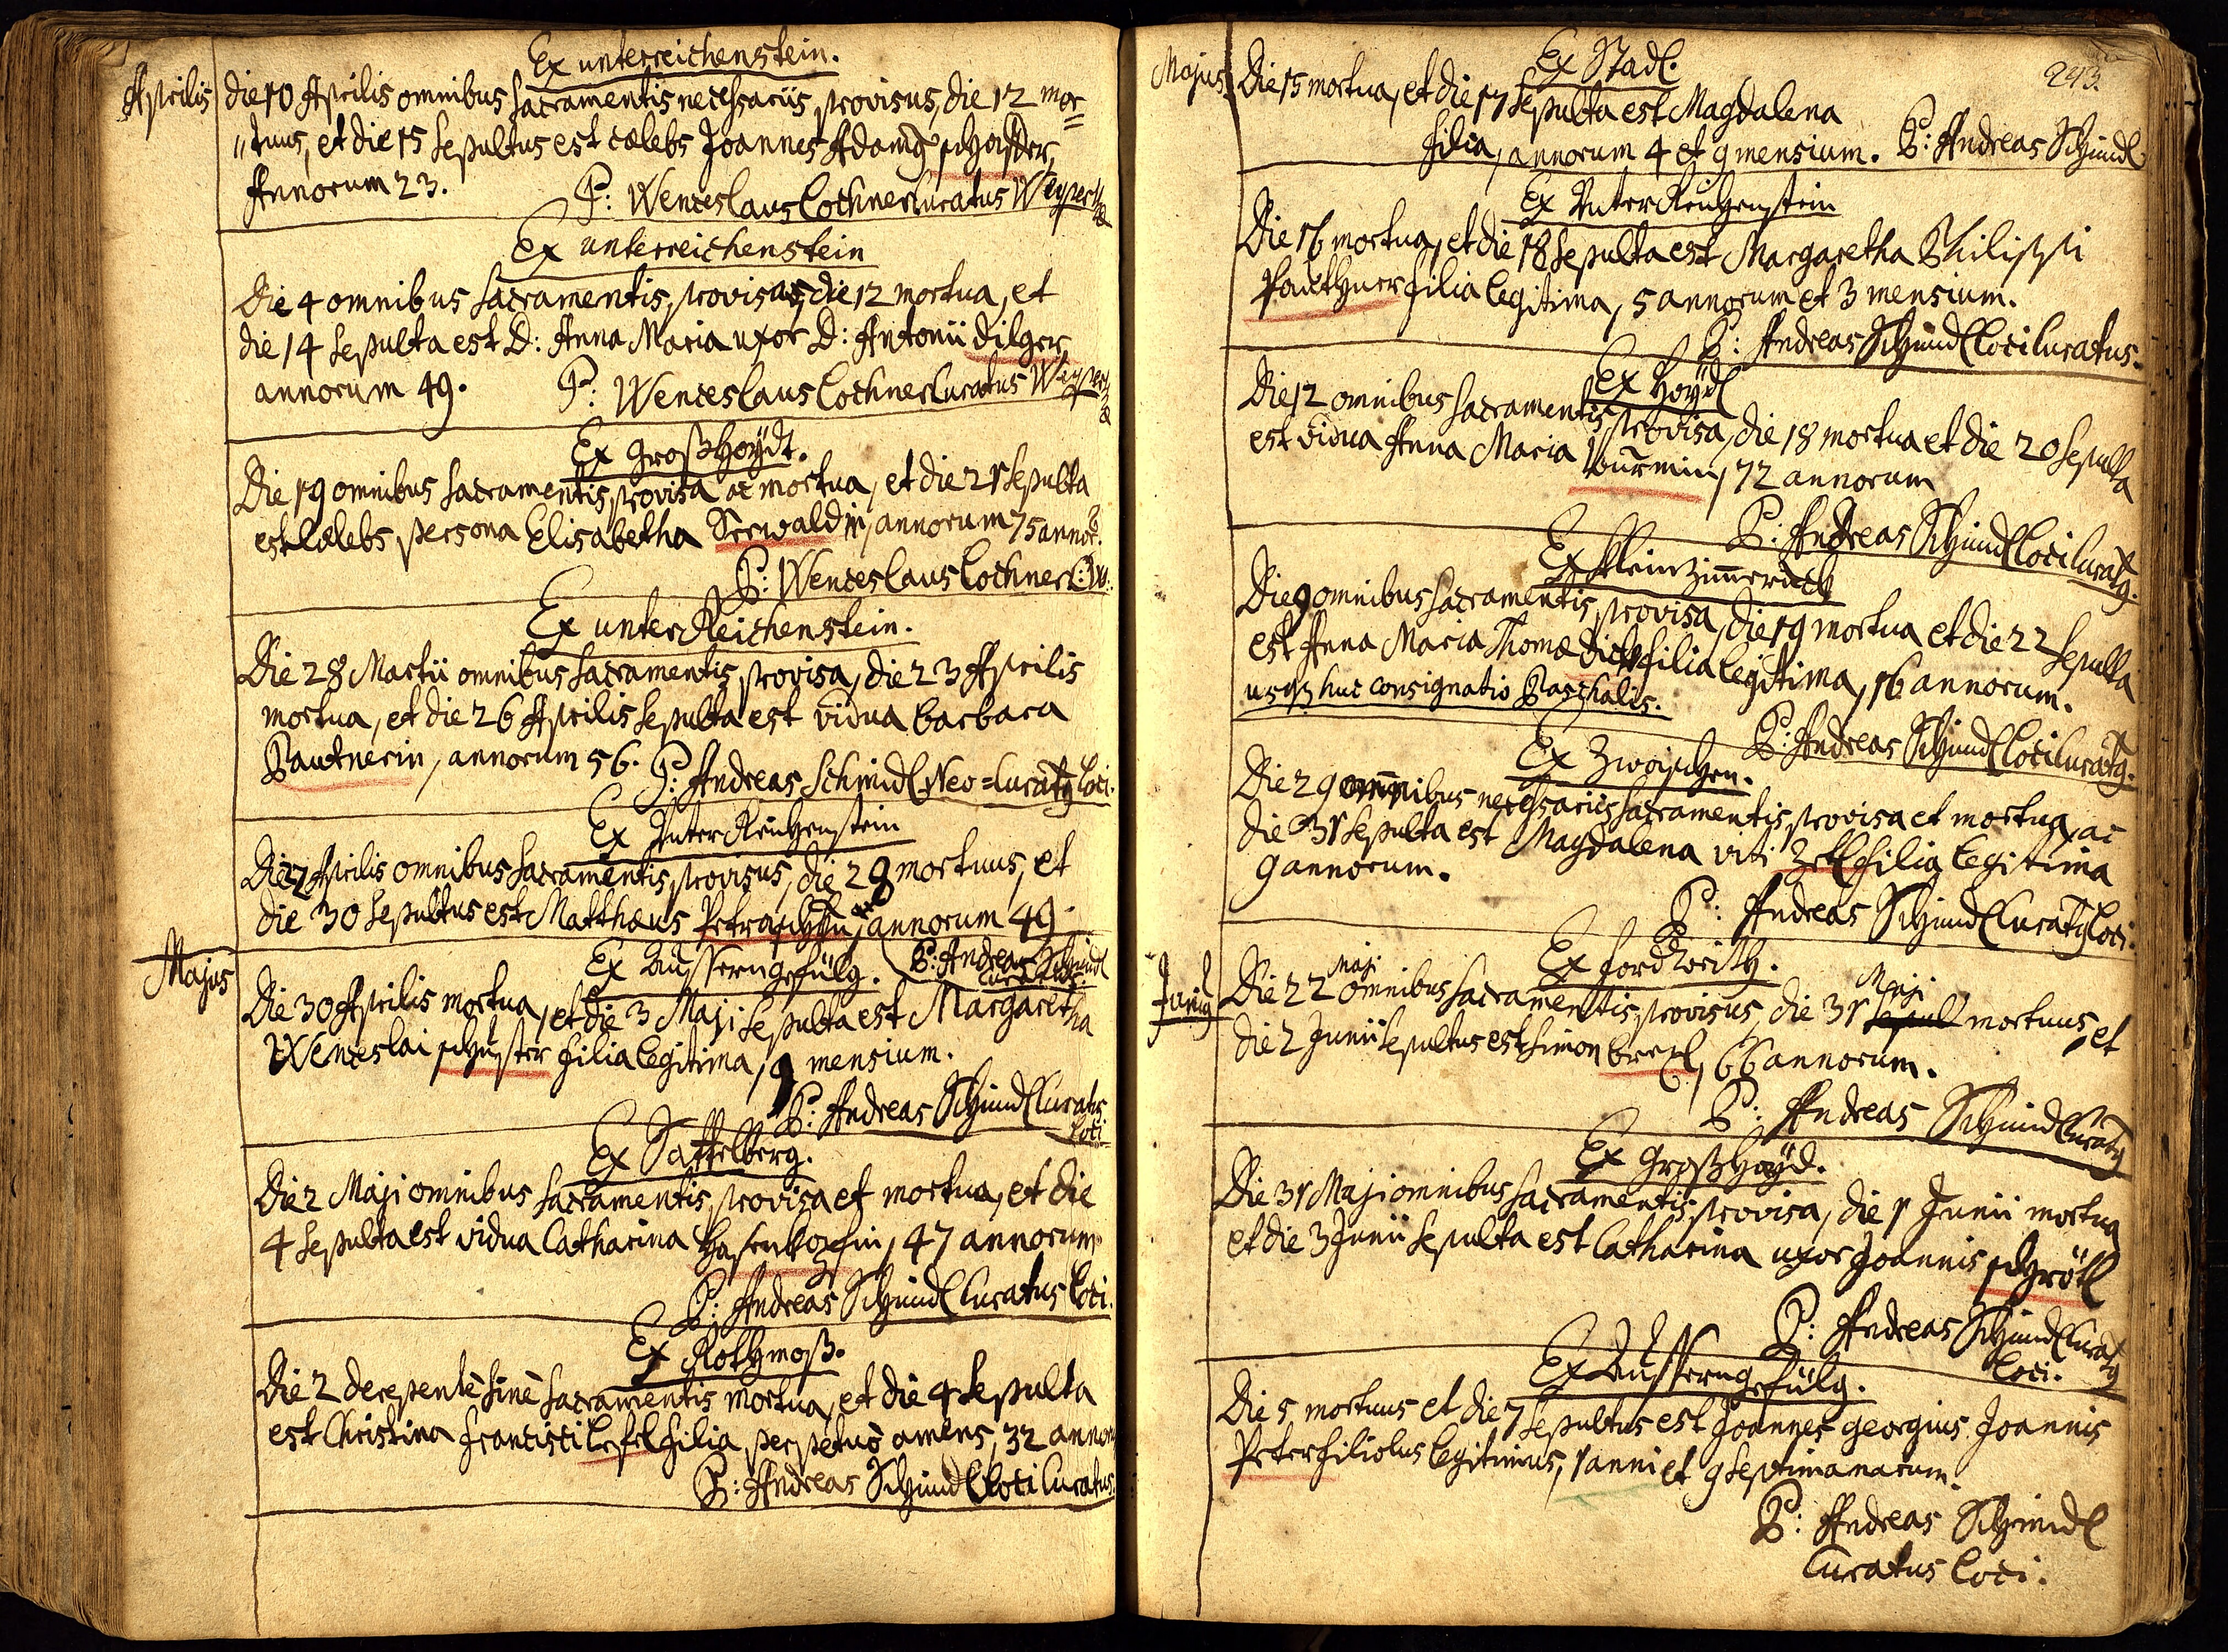 Ex unterreichenstein.
Aprilis
die 10 Aprilis omnibus sacramentis necessariis provisus, die 12 mor=
"tuus, et die 15 sepultus est cælebs Joannes Adamg
Annorum 23. P: Wenceslaus Lochner Curatus
Ex unterreichenstein
Die 4 omnibus sacramentis provisa, die 12 mortua, et
die 14 sepulta est D: Anna Maria uxor D: Antonii dilger,
annorum 49. P: Wenceslaus Lochner Curatus
Ex Großhoÿdt.
Die 19 omnibus sacramentis provisa ac mortua, et die 21 sepulta
est Cælebs persona Elisabetha Seewaldin, annorum 75 annor:
P: Wenceslaus Lochner C:W:
Ex unterReichenstein.
Die 28 Martii omnibus sacramentis provisa, die 23 Aprilis
mortua, et die 26 Aprilis sepulta est vidua barbara
Pautnerin, annorum 56. P: Andreas Schmidl Neo=Curatg loci.
Ex UnterReichenstein
Die 7 Aprilis omnibus sacramentis provisus, die 28 mortuus, et
die 30 sepultus est Matthæus annorum 49.
P: Andreas Schmidl
Curatus.
Majus
Ex Aussergefülg.
Die 30 Aprilis mortua, et die 3 Maji sepulta est Margaretha
Wenceslai schuster filia legitima, 9 mensium.
P: Andreas Schmidl Curatus
loci
Ex Sattelberg.
Die 2 Maji omnibus sacramentis provisa et mortua, et die
4 sepulta est vidua Catharina Hasenkopfin, 47 annorum
P: Andreas Schmidl Curatus loci.
Ex Rothmoß.
Die 2 derepentè sinè sacramentis mortua, et die 4 sepulta
est Christina Francisci Lefel filia perpetuò amens, 32 annor
P: Andreas Schmidl loci Curatus.
243.
Ex Stadl.
Majus.
Die 15 mortua, et die 17 sepulta est Magdalena
filia, annorum 4 et 9 mensium. P: Andreas Schmidl
Ex UnterReichenstein
Die 16 mortua, et die 18 sepulta est Margaretha Philippi
filia legitima, 5 annorum et 3 mensium.
P: Andreas Schmidl loci Curatus.
Ex Hoÿd
Die 12 omnibus sacramentis provisa, die 18 mortua et die 20 sepulta
est vidua Anna Maria Wurmin, 72 annorum
P: Andreas Schmidl loci Curatg.
Ex Kleinzimmeruck
Die 9 omnibus sacramentis provisa, die 19 mortua et die 22 sepulta
est Anna Maria Thomæ Dick filia legitima, 16 annorum.
usq3 huc consignatio Paschalis.
P: Andreas Schmidl loci Curatg.
Ex Zwoischen.
Die 29 omnibus necessariis sacramentis provisa et mortua, ac
die 31 sepulta est Magdalena viti Zettl filia legitima
9 annorum.
P: Andreas Schmidl Curatg loci.
Ex fordereith.
Junig
Die 22 Maji omnibus sacramentis provisus, die 31 Maji sepul mortuus, et
die 2 Junii sepultus est Simon 66 annorum.
P: Andreas Schmidl Curatg
Ex Großhaÿd.
Die 31 Maji omnibus sacramentis provisa, die 1 Junii mortua
et die 3 Junii sepulta est Catharina uxor Joannis schrötl
P: Andreas Schmidl Curatg
loci.
Ex Aussergefülg.
Die 5 mortuus et die 7 sepultus est Joannes georgius Joannis
Peter filiolus legitimus, 1 anni et 9 septimanarum.
P: Andreas Schmidl
Curatus loci.